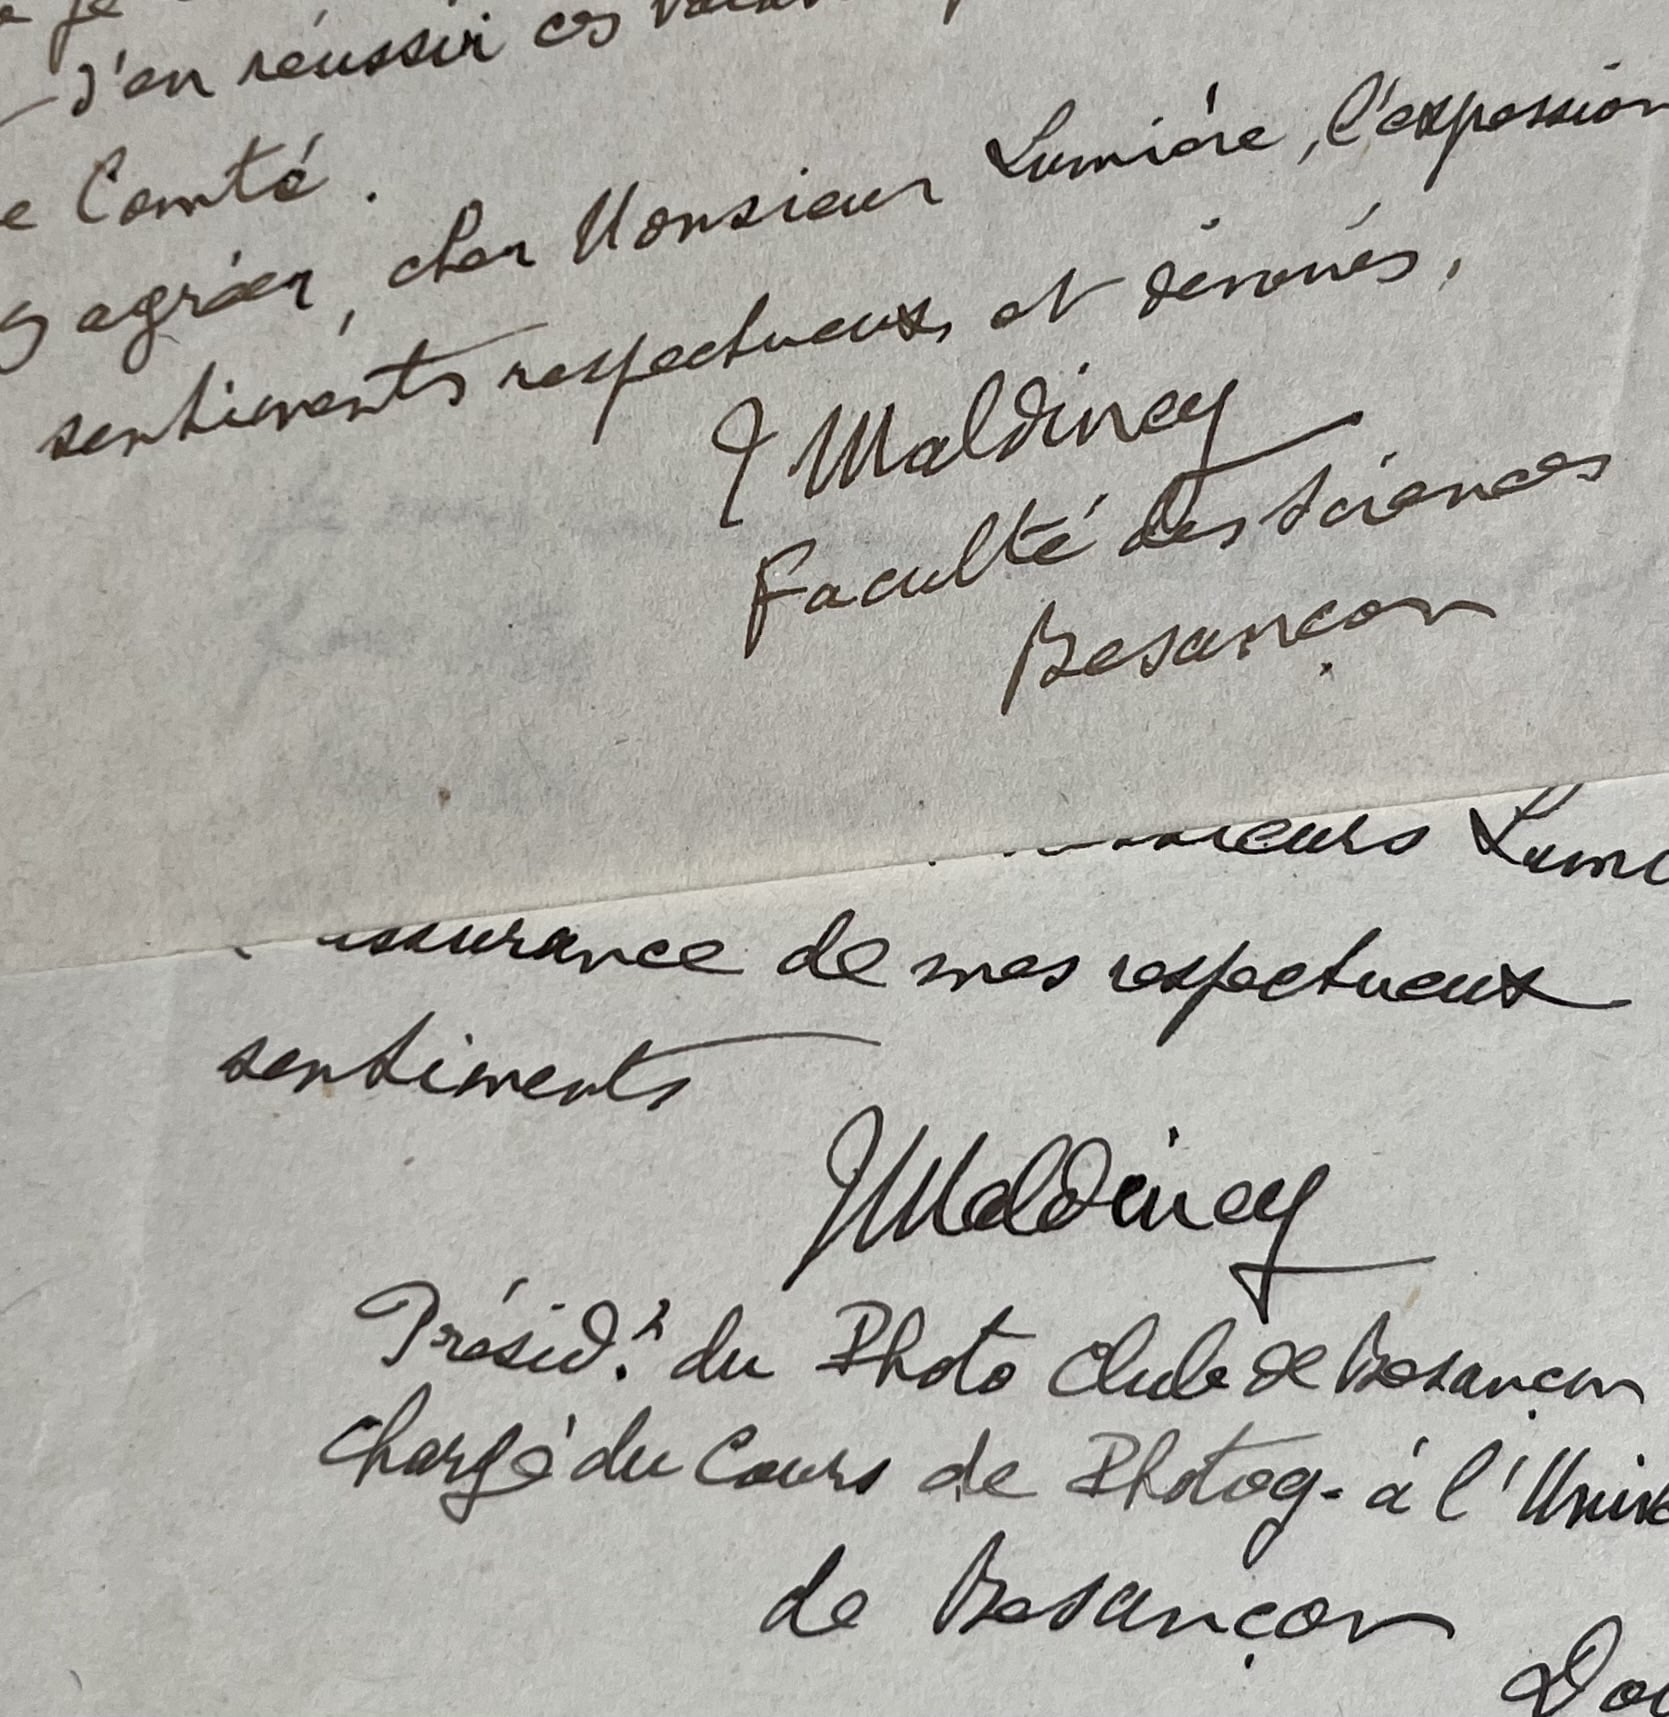 J'en réussir ces
e Comté.
agréer, cher Monsieur Lumière, l'expession
sentiments respectueux et dévoués,
J Maldiney
Faculté des Sciences
Besançon
ssieurs Lumi
assurance de mes respectueux
sentiments
JMaldiney
Présid.t du Photo Club de Besançon
chargé du Cours de Photog- à l'Unive
de Besançon
Dou